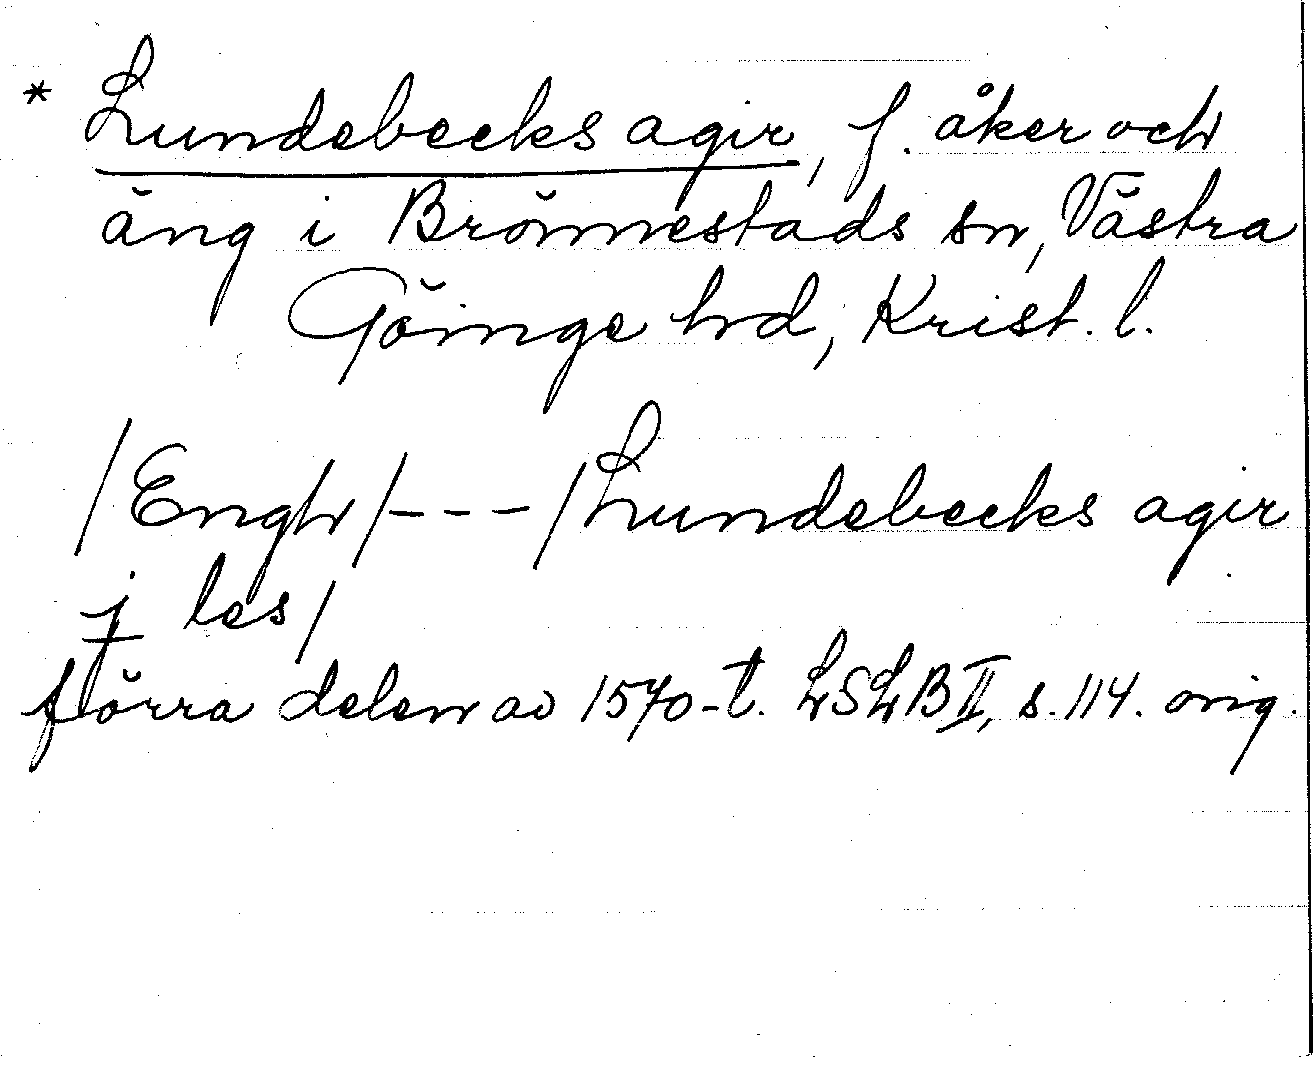 * Lundebecks agir, f. åker och
äng i Brönnestads sn, Västra
Göinge hd, Krist. l.
/Engh/ --- /Lundebecks agir
j les/
förra delen av 1570-t. LSLB II, s. 114. orig.